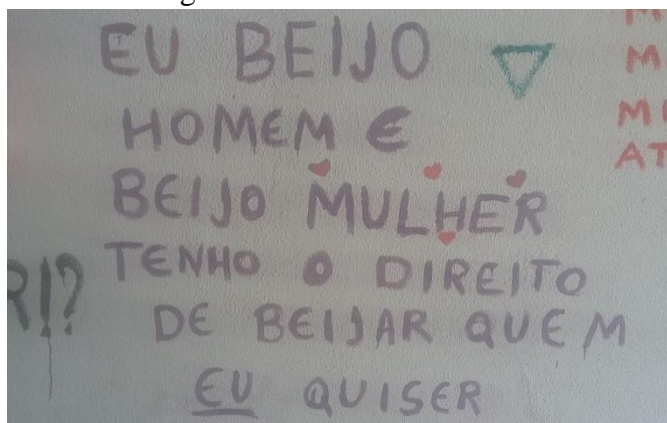 EU BEIJO
HOMEM E
BEIJO MULHER
TENHO O DIREITO
DE BEIJAR QUEM
EU QUISER